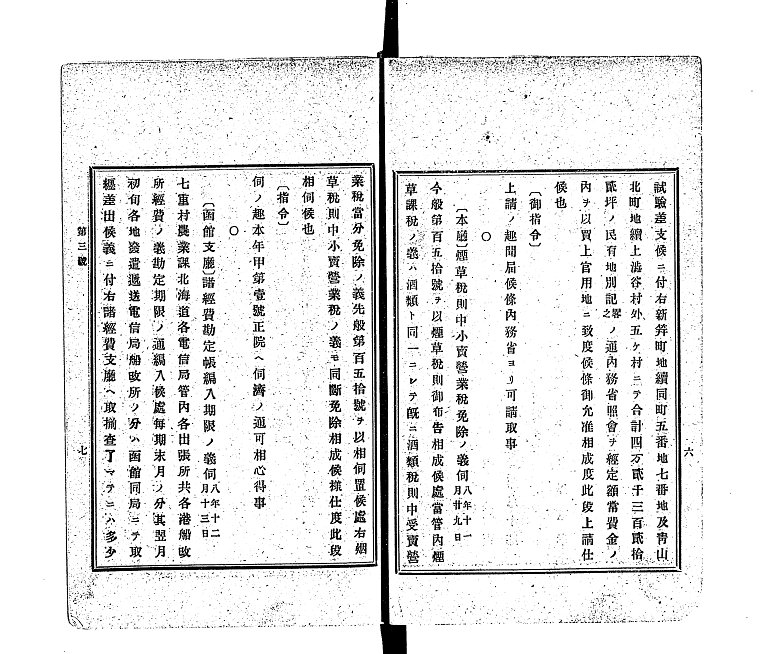 試驗差支候ニ付右新笄町地續同町五番地七番地及靑山
北町地續上澁谷村外五ケ村ニテ合計四万貳千三百貳拾
貳坪ノ民有地別記畧之ノ通內務省照會ヲ經定額當費金ノ
內ヲ以買上官用地ニ致度候條御允准相成度此段上請仕
候也
〔御指令〕
上請ノ趣聞屆候條內務省ヨリ可請取事
〇
〔本廳〕煙草稅則中小賣營業稅免除ノ義伺 八年十一月廿九日
今般第百五拾號ヲ以煙草稅則御布告相成候處當管內煙
草課稅ノ義ハ酒類ト同一ニシテ旣ニ酒類稅則中受賣營
六
業稅當分免除ノ義先般第百五拾號ヲ以相伺置候處右烟
草稅則中小賣營業稅ノ義モ同斷免除相成候樣仕度此段
相伺候也
〔指令〕
伺ノ趣本年甲第壹號正院ヘ伺濟ノ通可相心得事
〇
〔函館支廳〕諸經費勘定帳編入期限ノ義伺 八年十二月十三日
七重村農業課北海道各電信局管內各出張所共各港船改
所經費ノ義勘定期限ノ通編入候處每期末月ノ分其翌月
初旬各地發遣遞送電信局船改所ノ分ハ函館同局ニテ取
經差出候義ニ付右諸經費支廳ヘ取揃査了マテニハ多少
第三號
七